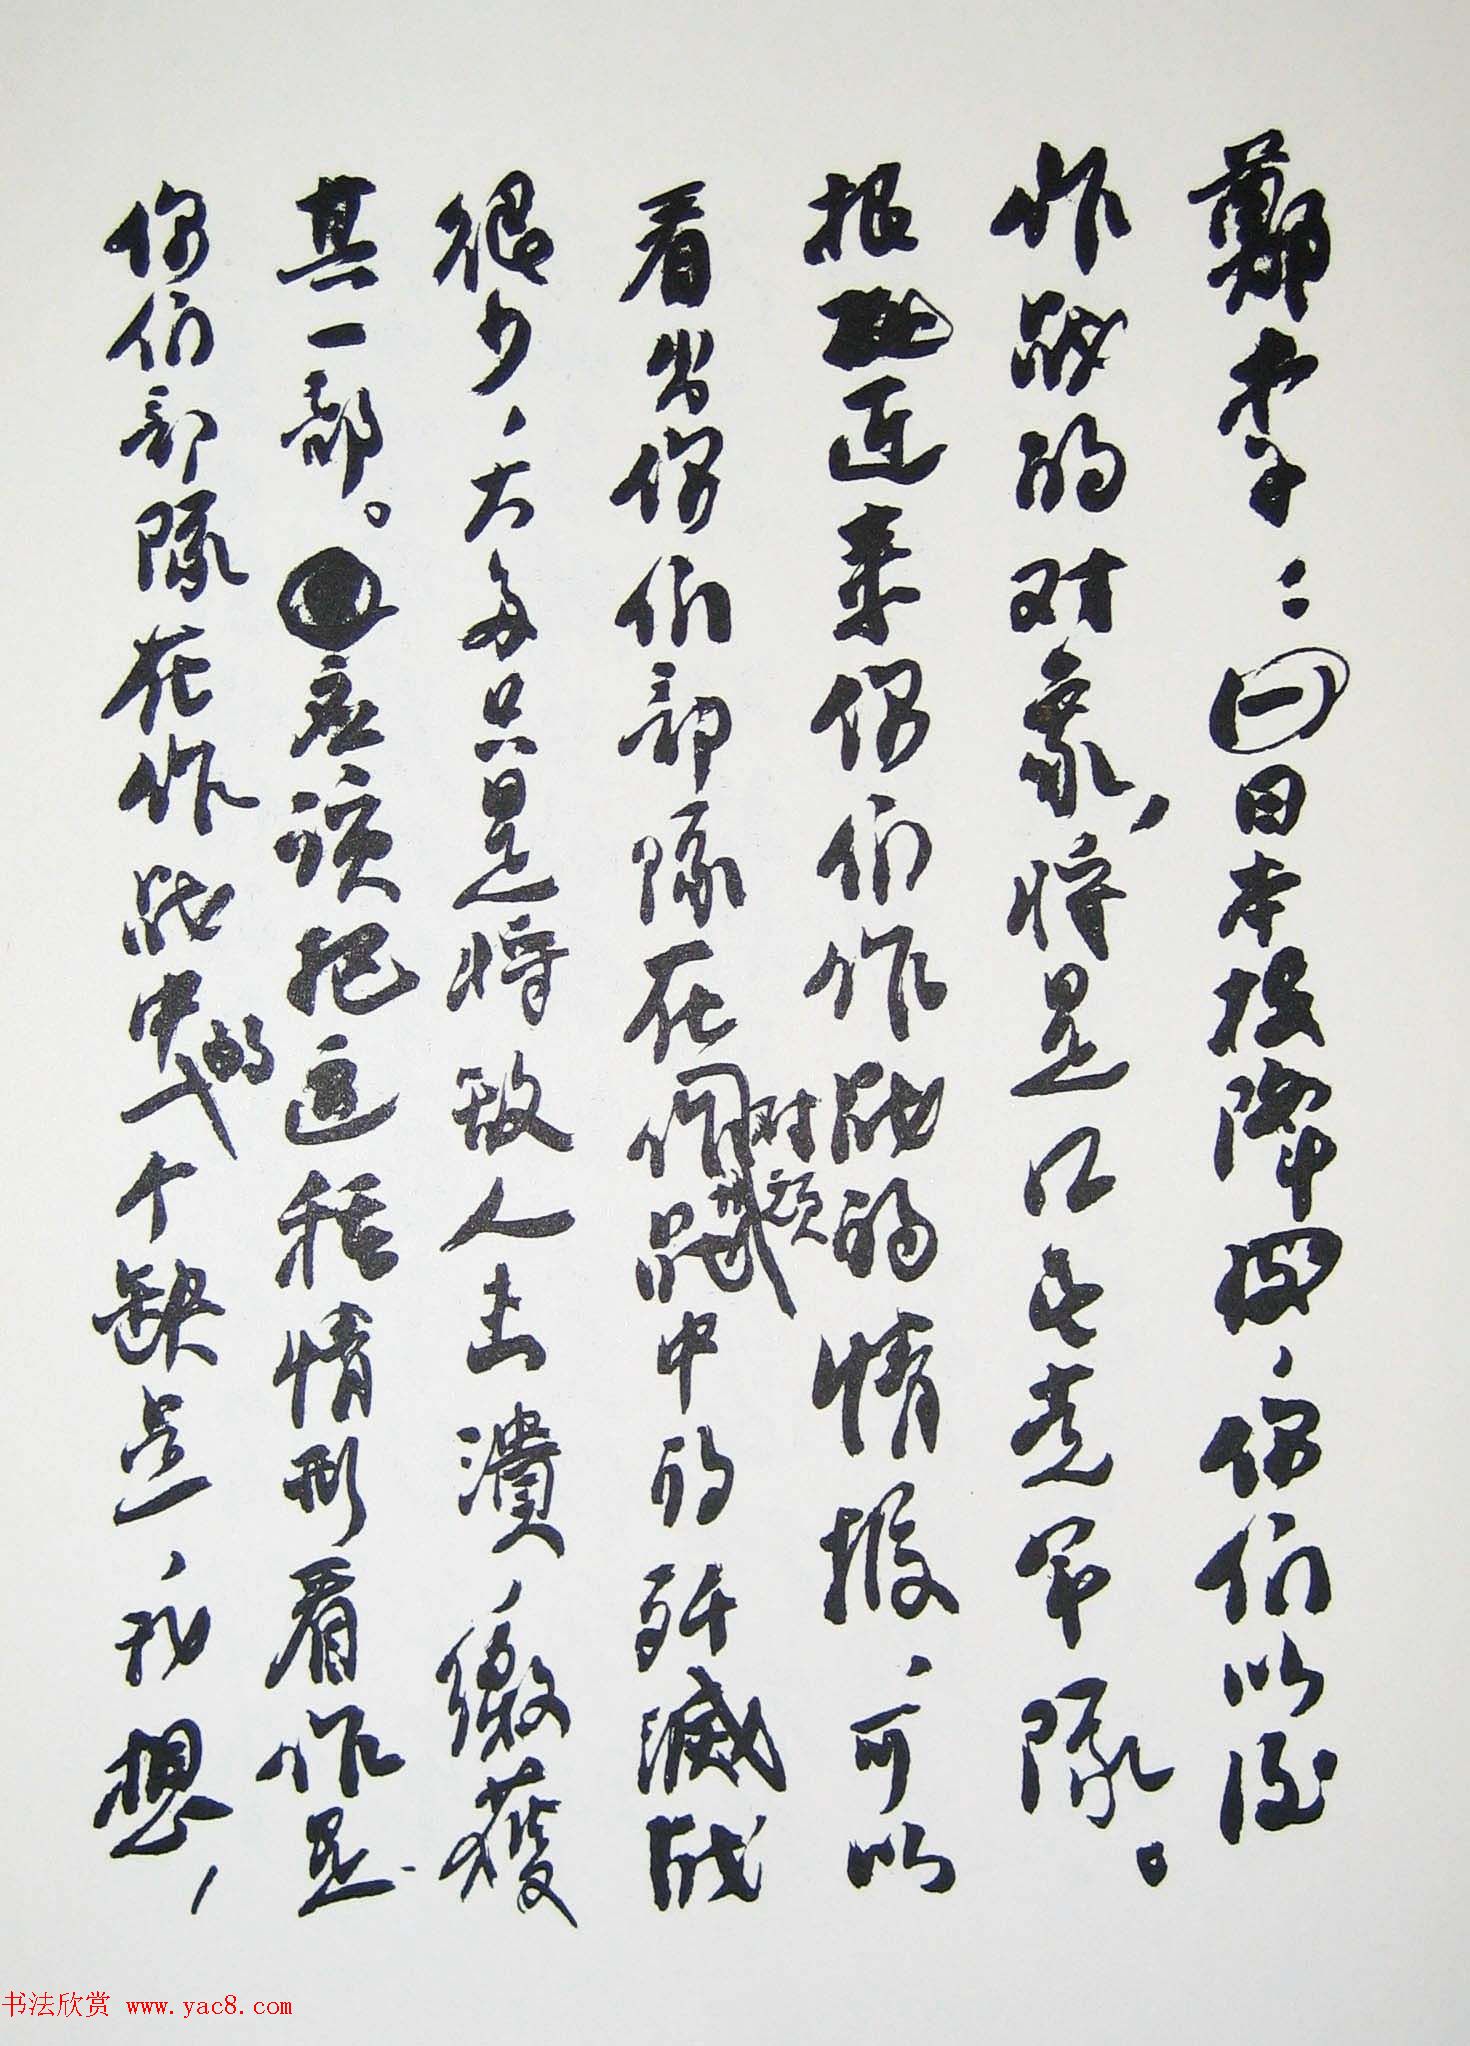 鄭李：(一)日本投降，你们以后
作战的对象，将是江、顽军队。
根近来你们作战的情报，可以
看出你们部队在对顽战中的歼灭战
很少，大多只是将敌人击溃，缴获
其一部。应该把这种情形看作是
你们部队在作战中的一个缺点，我想，
书法欣赏 www.yac8.com